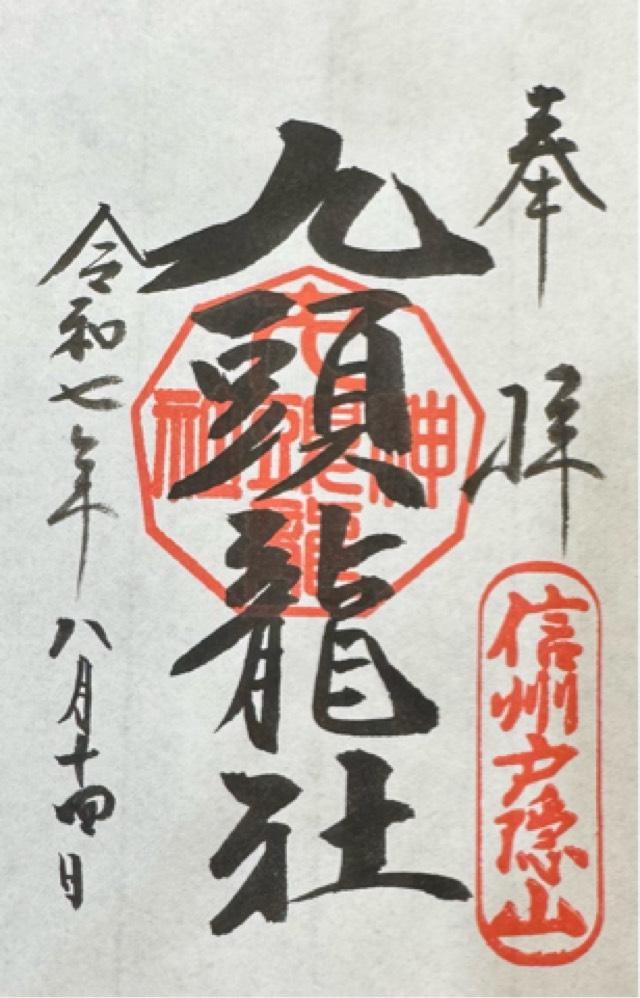 奉拝
信州戸隠山
九頭龍社
九頭龍
神社
令和七年八月十四日